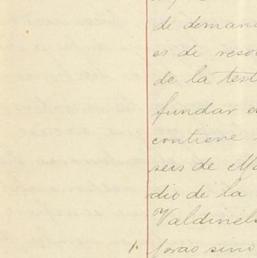 de deman
es de reso
de la test
fundar e
contiene
seis de Ma
dio de la
Valdinels